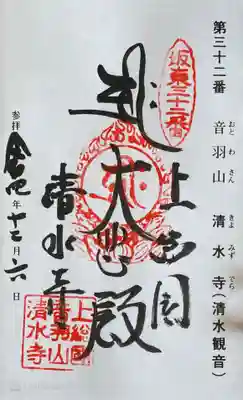 第三十二番　音羽山　清水寺(清水観音)
おとわさん　きよみずでら
坂東三十二番
上総国
大悲殿
清水寺
参拝　令和四年十二月六日
上総国
音羽山
清水寺